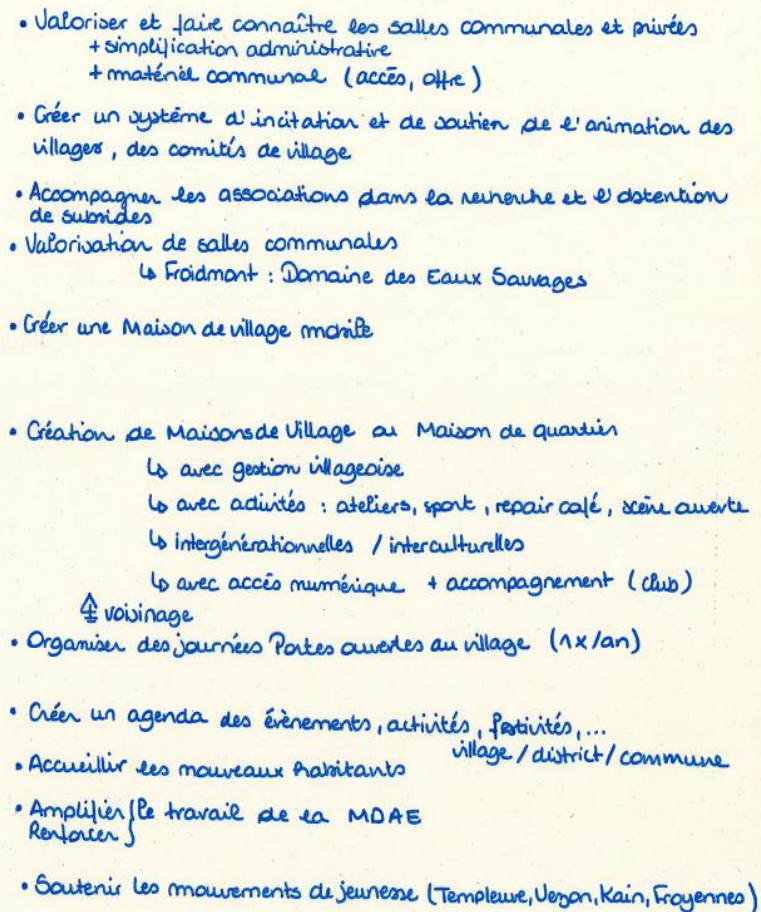 • Valoriser et faire connaître les salles communales et privées
+ simplification administrative
+ matériel communal (accès, offre)
• Créer un système d'incitation et de soutien de l'animation des
villages, des comités de village
• Accompagner les associations dans la recherche et l'obtention
de subsides
• Valorisation de salles communales
↳ Froidmont : Domaine des Eaux Sauvages
• Créer une Maison de village mobile
• Création de Maisons de Village ou Maison de quartier
↳ avec gestion villageoise
↳ avec activités : ateliers, sport, repair café, scène ouverte
↳ intergénérationnelles / interculturelles
↳ avec accès numérique + accompagnement (club)
voisinage
• Organiser des journées Portes ouvertes au village (1x/an)
• Créer un agenda des évènements, activités, festivités, ...
village / district / commune
• Accueillir les nouveaux habitants
• Amplifier } le travail de la MDAE
Renforcer }
• Soutenir les mouvements de jeunesse (Templeuve, Vezon, Kain, Froyennes)